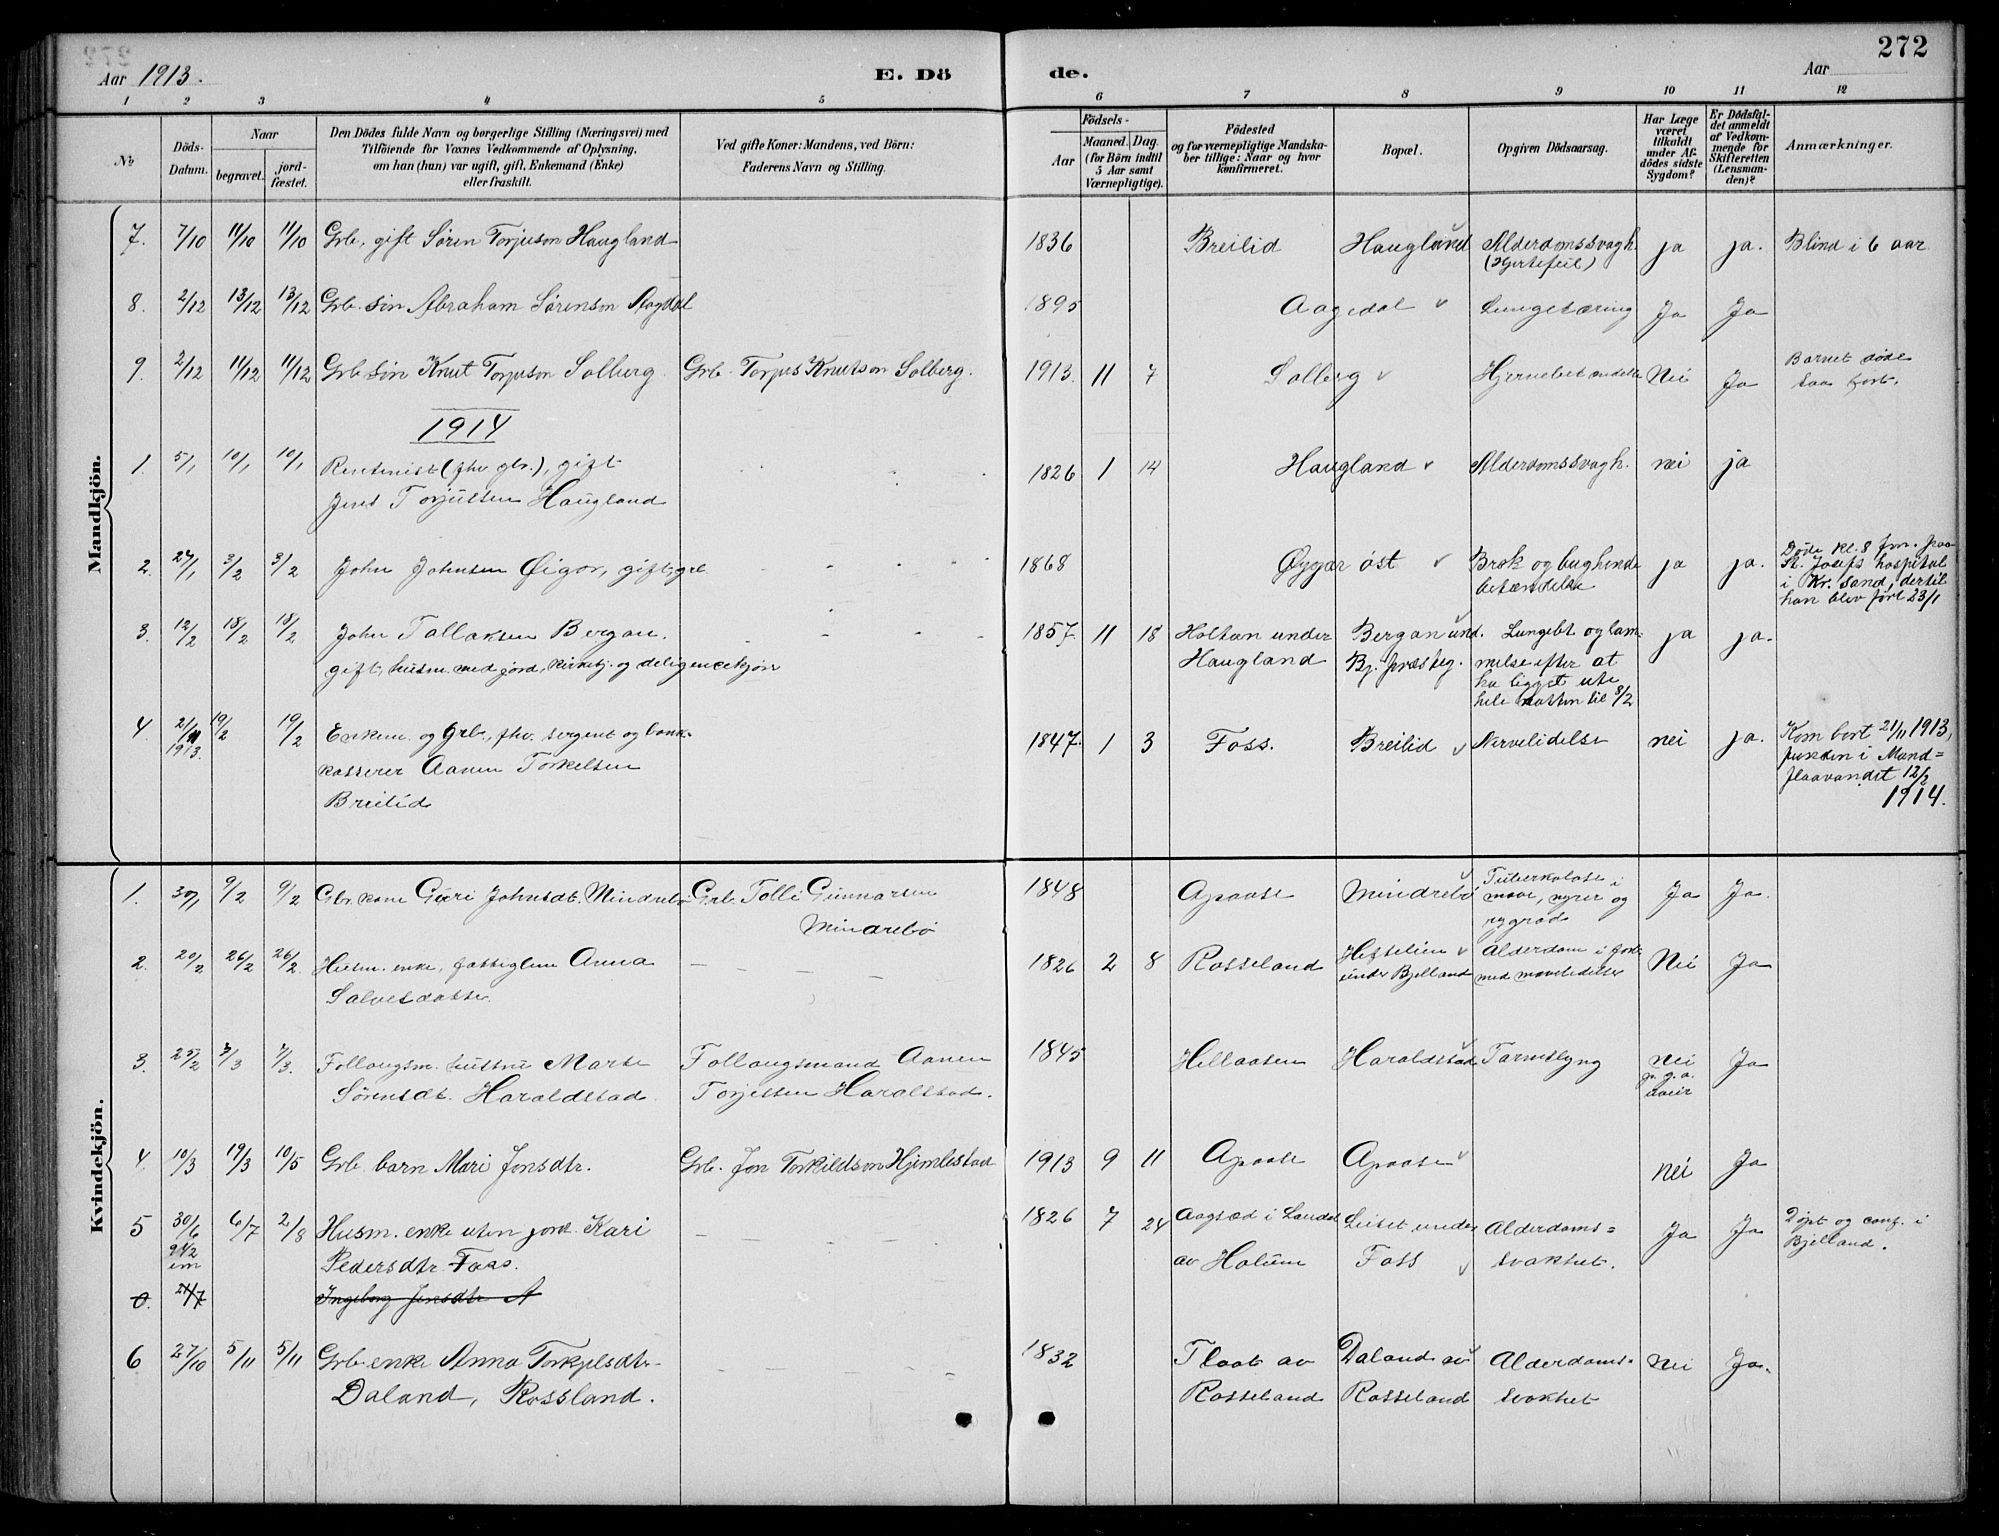 272
Aar 1913.
E. Dö
de.
Aar
1 2 3 4 5 6 7 8 9 10 11 12
No
Döds-Datum.
Naar
begravet.
jord-fæstet.
Den Dödes fulde Navn og borgerlige Stilling (Næringsvei) med
Tilföiende for Voxnes Vedkommende af Oplysning,
om han (hun) var ugift, gift, Enkemand (Enke)
eller fraskilt.
Ved gifte Koner: Mandens, ved Börn:
Faderens Navn og Stilling.
Födsels-
Aar
Maaned. Dag.
(for Börn indtil
5 Aar samt
Værnepligtige).
Födested
og for værnepligtige Mandska-
ber tillige: Naar og hvor
konfirmeret.
Bopæl.
Opgiven Dödsaarsag.
Har Læge
været
tilkaldt
under Af-
dödes sidste
Sygdom?
Er Dödsfal-
det anmeldt
af Vedkom-
mende for
Skifteretten
(Lensman-
den)?
Anmærkninger.
Mandkjön.
7. 7/10 11/10 11/10 Grb. gift Søren Torjuson Haugland 1836 Breilid Haugland Alderdomssvagh. ja ja. Blind i 6 aar
(Hjertefeil)
8. 2/12 13/12 13/12 Grb. søn Abraham Sørenson Aagdal 1895 Aagedal Lungetæring Ja Ja
9. 2/12 11/12 11/12 Grb søn Knut Torjuson Solberg. Grb. Torjus Knutson Solberg. 1913. 11 7 Solberg Hjernebetændelse Nei Ja Barnet døde
saa fort.
1914
1. 5/1 10/1 10/1 Rentenist (fhv gbr.), gift 1826 1 14 Haugland Alderdomssvagh. nei ja
Jens Torjussen Haugland
2. 27/1 3/2 3/2 John Johnsen Øigar, gift, grb. 1868 Øygar øst Brok og bughinde ja ja. Døde kl. 8 fm. paa
betændelse St. Josefs hospital
i Kr. sand, dertil
han blev ført 23/1
3. 12/2 18/2 18/2 John Tallaksen Bergan. 1857. 11 18 Holtan under Bergan und. Lungebt og lam- ja ja.
gift, husm. med jord, kirketj. og deligencekjører Haugland Bj. præsteg. melse efter at
ha ligget ute
hele natten til 8/2
4. 21/11 1913. 19/2 19/2 Enkem. og Grb., fhv. sergent og bank- 1847. 1 3 Foss. Breilid Nervelidelse nei ja. Kom bort 21/11 1913,
kasserer Aanen Torkelsen funden i Mand-
Breilid flaavandet 12/2
1914.
Kvindekjön.
1. 30/1 9/2 9/2 Gbr. kone Guri Johnsdt. Mindrebø Grb. Tolli Gunnarsen 1848 Apaase Mindrebø Tuberkulose i Ja Ja.
Mindrebø mave, nyrer og
rygrad
2. 20/2 26/2 26/2 Husm. enke, fattiglem Anna 1826 2 8 Rosseland Hesselien Alderdom i forb. Nei Ja
Salvesdatter. under Bjelland med mavelidelse
3. 25/2 7/3 7/3. Follaugsm. hustru Marte Follaugsmand Aanen 1845 Hellaasen Haraldstad Tarmslyng nei Ja
Sørensdt. Haraldstad. Torjessen Haralstad. p. g. a. uveir
4. 10/3 19/3 10/5 Grb. barn Mari Jonsdtr. Grb. Jon Torkildson Hjemlestad 1913 9 11 Apaase Apaase nei Ja
5 30/6 6/7 2/8 Husm. enke uten jord. Kari 1826 7 24 Aagsæd i Laudal Luset under Alderdoms- Ja Ja Døpt og conf. i
9 1/2 em Pedersdtr. Foss. av Holum Foss svakhet. Bjelland.
6. 24/7 Ingeborg Jensdtr A
6 27/10 5/11 5/11 Grb. enke Anna Torkjelsdtr. 1832 Flaat av Daland av Alderdoms- Nei Ja.
Daland, Rossland. Rosseland Rosseland svakhet